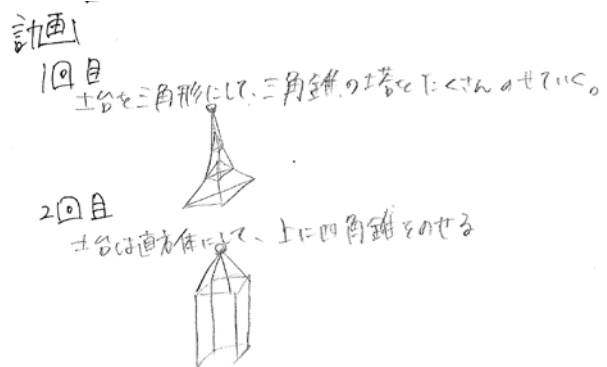 計画
1回目
土台を三角形にして、三角錐の塔をたくさんのせていく。
2回目
土台は直方体にして、上に四角錐をのせる